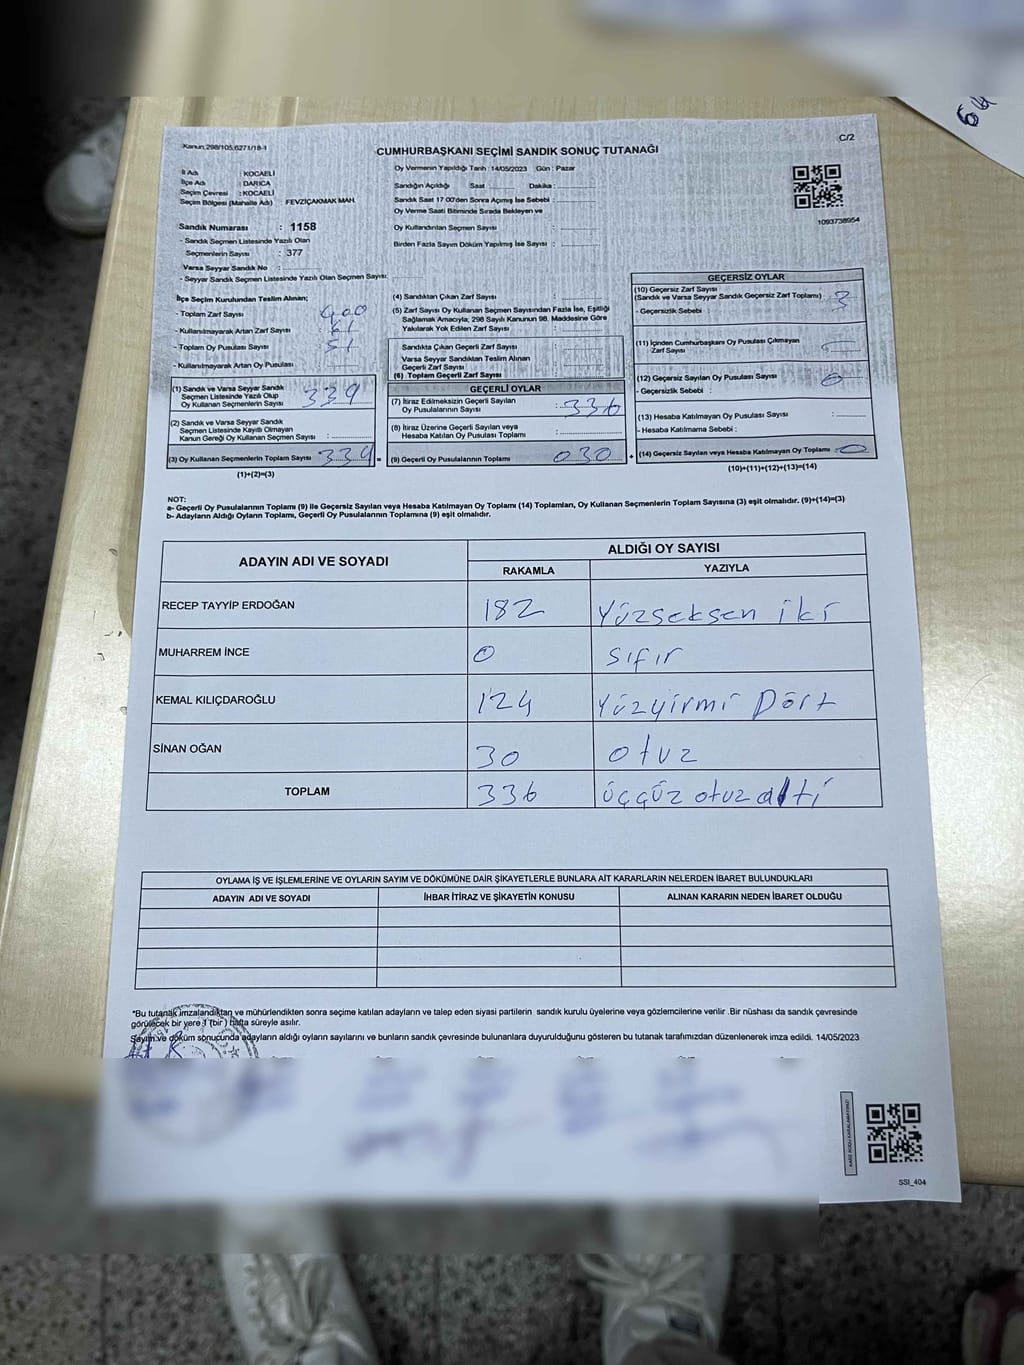 Kanun:298/105,6271/18-1
C/2
CUMHURBAŞKANI SEÇİMİ SANDIK SONUÇ TUTANAĞI
64
İl Adı : KOCAELİ
İlçe Adı : DARICA
Seçim Çevresi : KOCAELİ
Seçim Bölgesi (Mahalle Adı) : FEVZİÇAKMAK MAH.
Sandık Numarası : 1158
- Sandık Seçmen Listesinde Yazılı Olan
Seçmenlerin Sayısı : 377
Varsa Seyyar Sandık No :
- Seyyar Sandık Seçmen Listesinde Yazılı Olan Seçmen Sayısı:
Oy Vermenin Yapıldığı Tarih :14/05/2023 Gün : Pazar
Sandığın Açıldığı Saat Dakika :
Sandık Saat 17:00'den Sonra Açılmış İse Sebebi :
Oy Verme Saati Bitiminde Sırada Bekleyen ve
Oy Kullandırılan Seçmen Sayısı :
Birden Fazla Sayım Döküm Yapılmış İse Sayısı :
1093738954
İlçe Seçim Kurulundan Teslim Alınan;
- Toplam Zarf Sayısı : 400
- Kullanılmayarak Artan Zarf Sayısı : 61
- Toplam Oy Pusulası Sayısı : 51
- Kullanılmayarak Artan Oy Pusulası :
(1) Sandık ve Varsa Seyyar Sandık
Seçmen Listesinde Yazılı Olup
Oy Kullanan Seçmenlerin Sayısı : 339
(2) Sandık ve Varsa Seyyar Sandık
Seçmen Listesinde Kayıtlı Olmayan
Kanun Gereği Oy Kullanan Seçmen Sayısı :
(3) Oy Kullanan Seçmenlerin Toplam Sayısı 339 =
(1)+(2)=(3)
(4) Sandıktan Çıkan Zarf Sayısı :
(5) Zarf Sayısı Oy Kullanan Seçmen Sayısından Fazla İse, Eşitliği
Sağlamak Amacıyla, 298 Sayılı Kanunun 98. Maddesine Göre
Yakılarak Yok Edilen Zarf Sayısı :
Sandıkta Çıkan Geçerli Zarf Sayısı :
Varsa Seyyar Sandıktan Teslim Alınan
Geçerli Zarf Sayısı :
(6) Toplam Geçerli Zarf Sayısı :
GEÇERLİ OYLAR
(7) İtiraz Edilmeksizin Geçerli Sayılan
Oy Pusulalarının Sayısı : 336
(8) İtiraz Üzerine Geçerli Sayılan veya
Hesaba Katılan Oy Pusulası Toplamı :
(9) Geçerli Oy Pusulalarının Toplamı 030 +
GEÇERSİZ OYLAR
(10) Geçersiz Zarf Sayısı
(Sandık ve Varsa Seyyar Sandık Geçersiz Zarf Toplamı) : 3
- Geçersizlik Sebebi :
(11) İçinden Cumhurbaşkanı Oy Pusulası Çıkmayan
Zarf Sayısı :
(12) Geçersiz Sayılan Oy Pusulası Sayısı : 0
- Geçersizlik Sebebi :
(13) Hesaba Katılmayan Oy Pusulası Sayısı :
- Hesaba Katılmama Sebebi :
(14) Geçersiz Sayılan veya Hesaba Katılmayan Oy Toplamı : 0
(10)+(11)+(12)+(13)=(14)
NOT:
a- Geçerli Oy Pusulalarının Toplamı (9) ile Geçersiz Sayılan veya Hesaba Katılmayan Oy Toplamı (14) Toplamları, Oy Kullanan Seçmenlerin Toplam Sayısına (3) eşit olmalıdır. (9)+(14)=(3)
b- Adayların Aldığı Oyların Toplamı, Geçerli Oy Pusulalarının Toplamına (9) eşit olmalıdır.
ADAYIN ADI VE SOYADI
ALDIĞI OY SAYISI
RAKAMLA YAZIYLA
RECEP TAYYİP ERDOĞAN 182 Yüzseksen iki
MUHARREM İNCE 0 sıfır
KEMAL KILIÇDAROĞLU 124 Yüzyirmi Dört
SİNAN OĞAN 30 otuz
TOPLAM 336 üçgüz otuz altı
OYLAMA İŞ VE İŞLEMLERİNE VE OYLARIN SAYIM VE DÖKÜMÜNE DAİR ŞİKAYETLERLE BUNLARA AİT KARARLARIN NELERDEN İBARET BULUNDUKLARI
ADAYIN ADI VE SOYADI İHBAR İTİRAZ VE ŞİKAYETİN KONUSU ALINAN KARARIN NEDEN İBARET OLDUĞU
*Bu tutanak imzalandıktan ve mühürlendikten sonra seçime katılan adayların ve talep eden siyasi partilerin sandık kurulu üyelerine veya gözlemcilerine verilir .Bir nüshası da sandık çevresinde
görülecek bir yere 1 (bir ) hafta süreyle asılır.
Sayım ve döküm sonucunda adayların aldığı oyların sayılarını ve bunların sandık çevresinde bulunanlara duyurulduğunu gösteren bu tutanak tarafımızdan düzenlenerek imza edildi. 14/05/2023
SSI_404